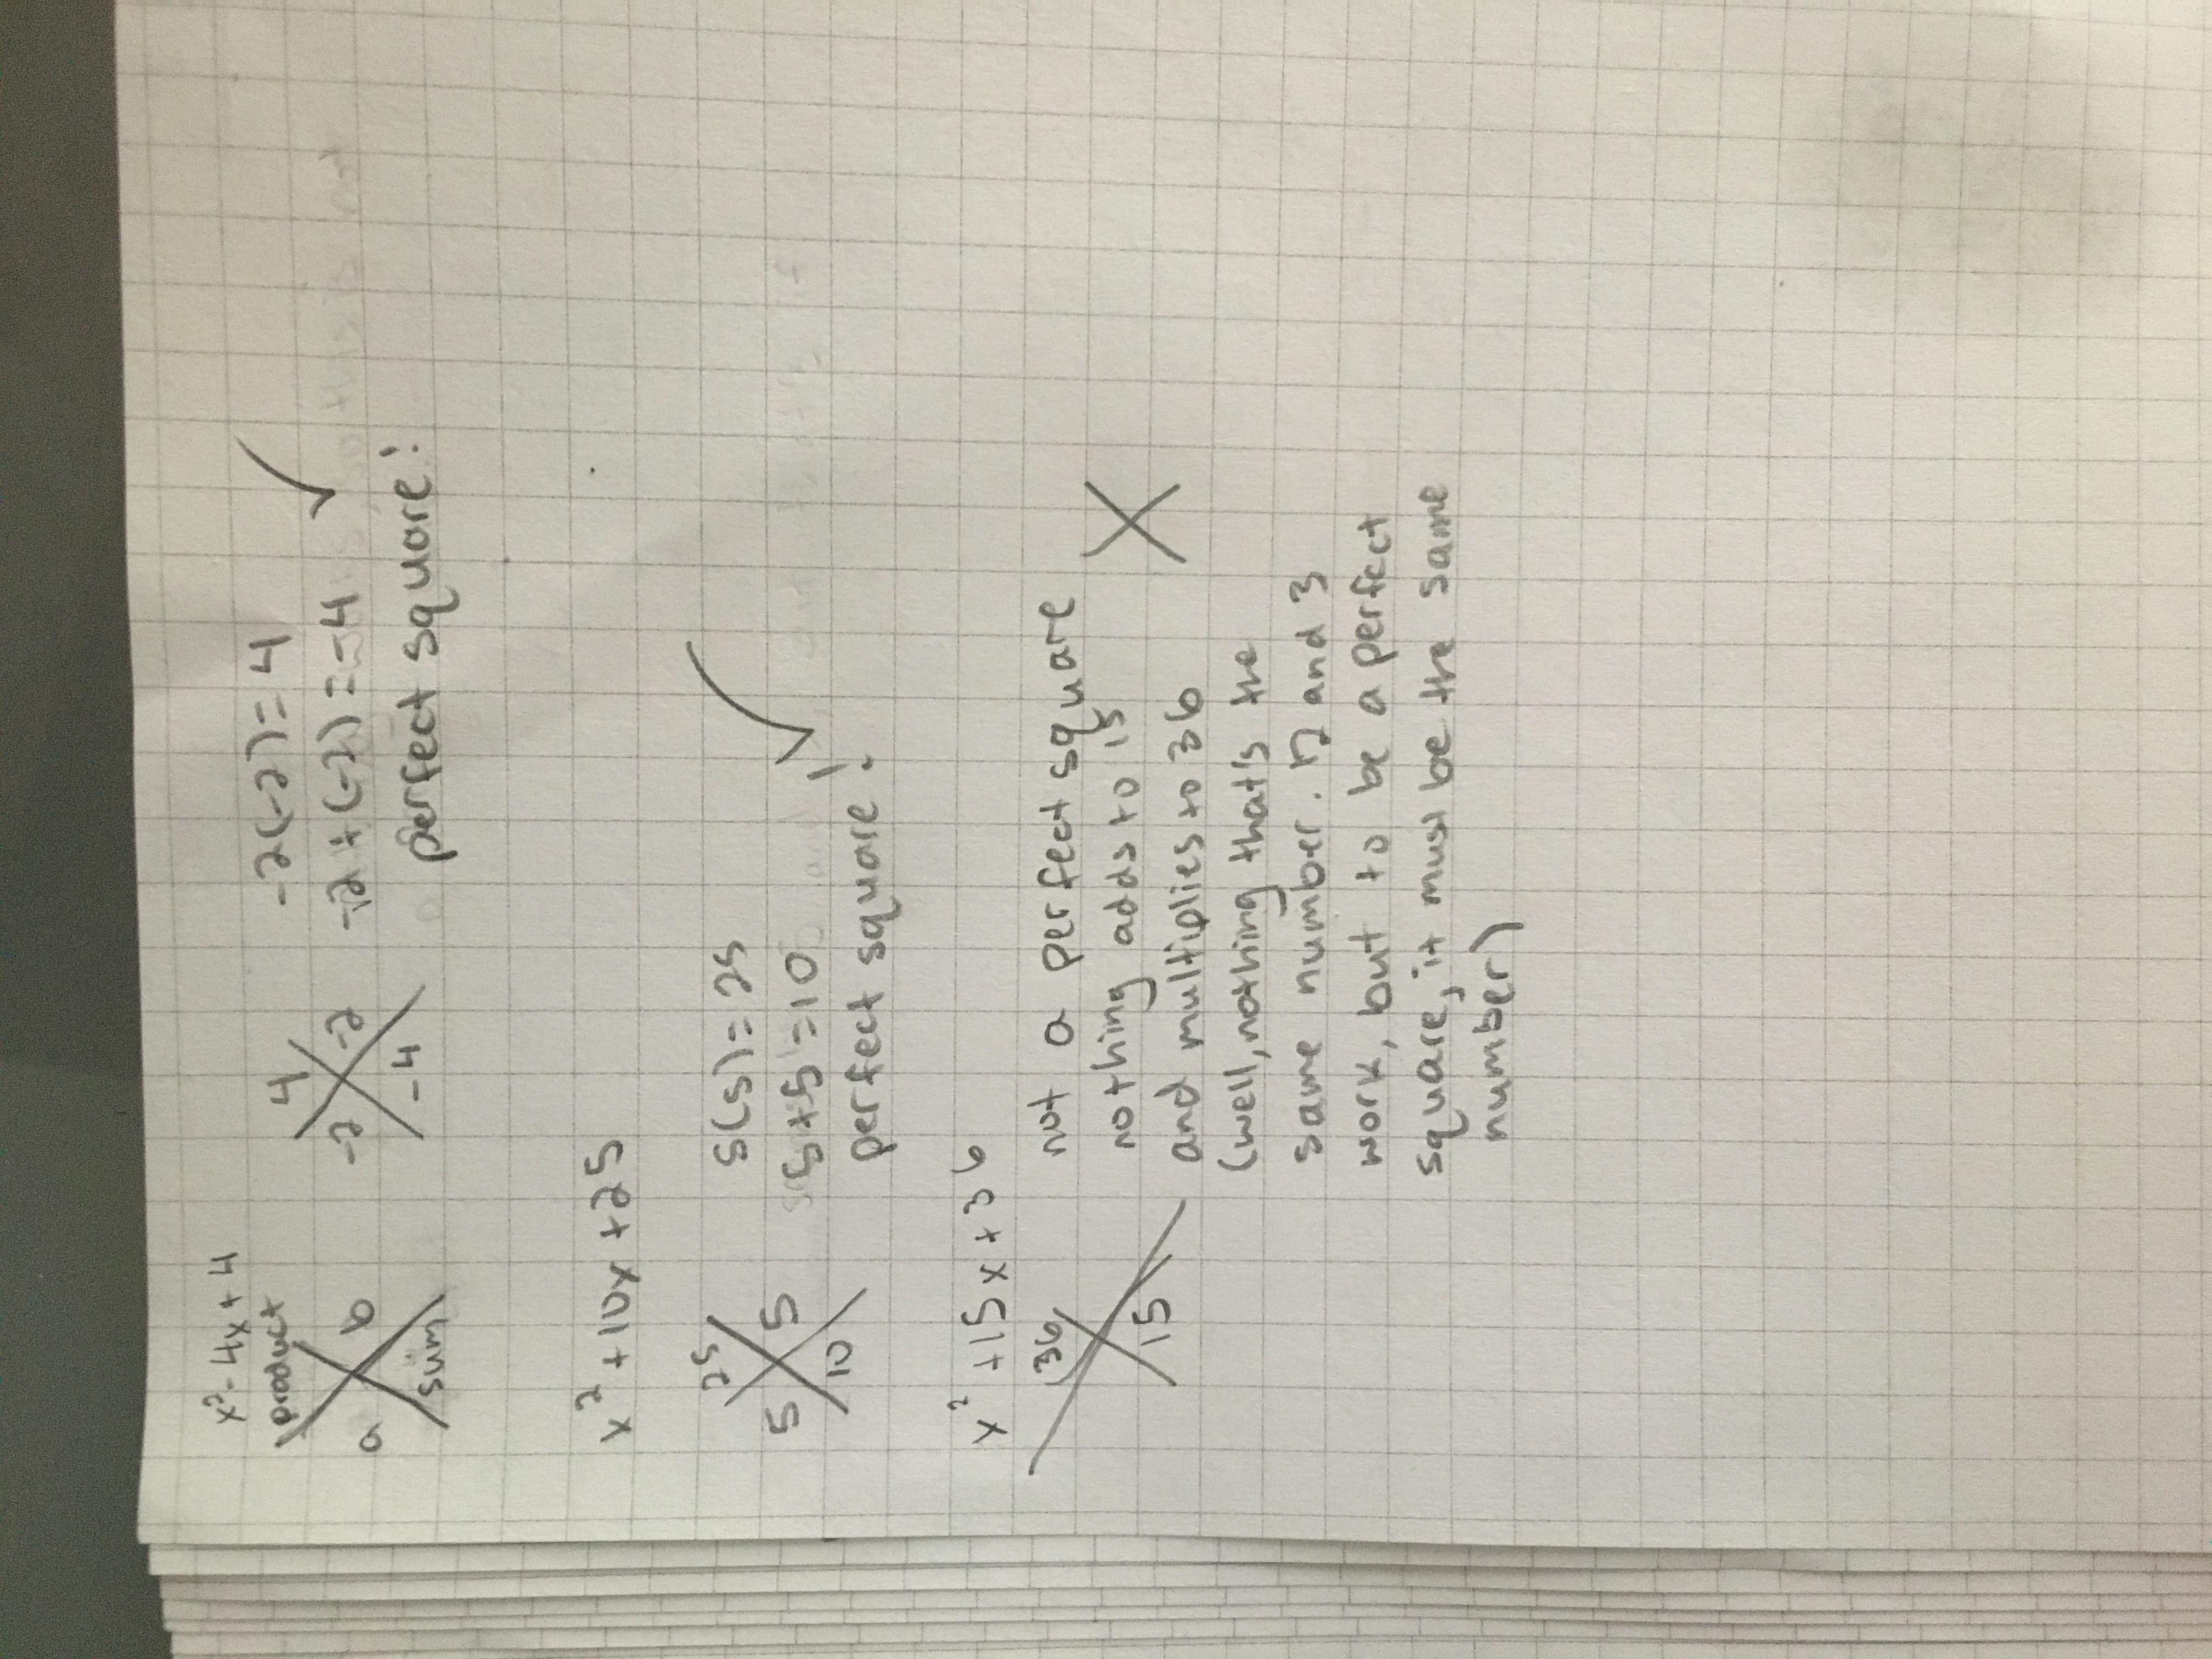 x² - 4x + 4
product
a b
sum
4
-2 -2
-4
-2(-2) = 4
-2 + (-2) = -4
perfect square!
x² + 10x + 25
25
5 5
10
5(5) = 25
5 + 5 = 10
perfect square!
x² + 15x + 36
36
15
not a perfect square
nothing adds to 15
and multiplies to 36
(well, nothing that's the
same number. 12 and 3
work, but to be a perfect
square, it must be the same
number)